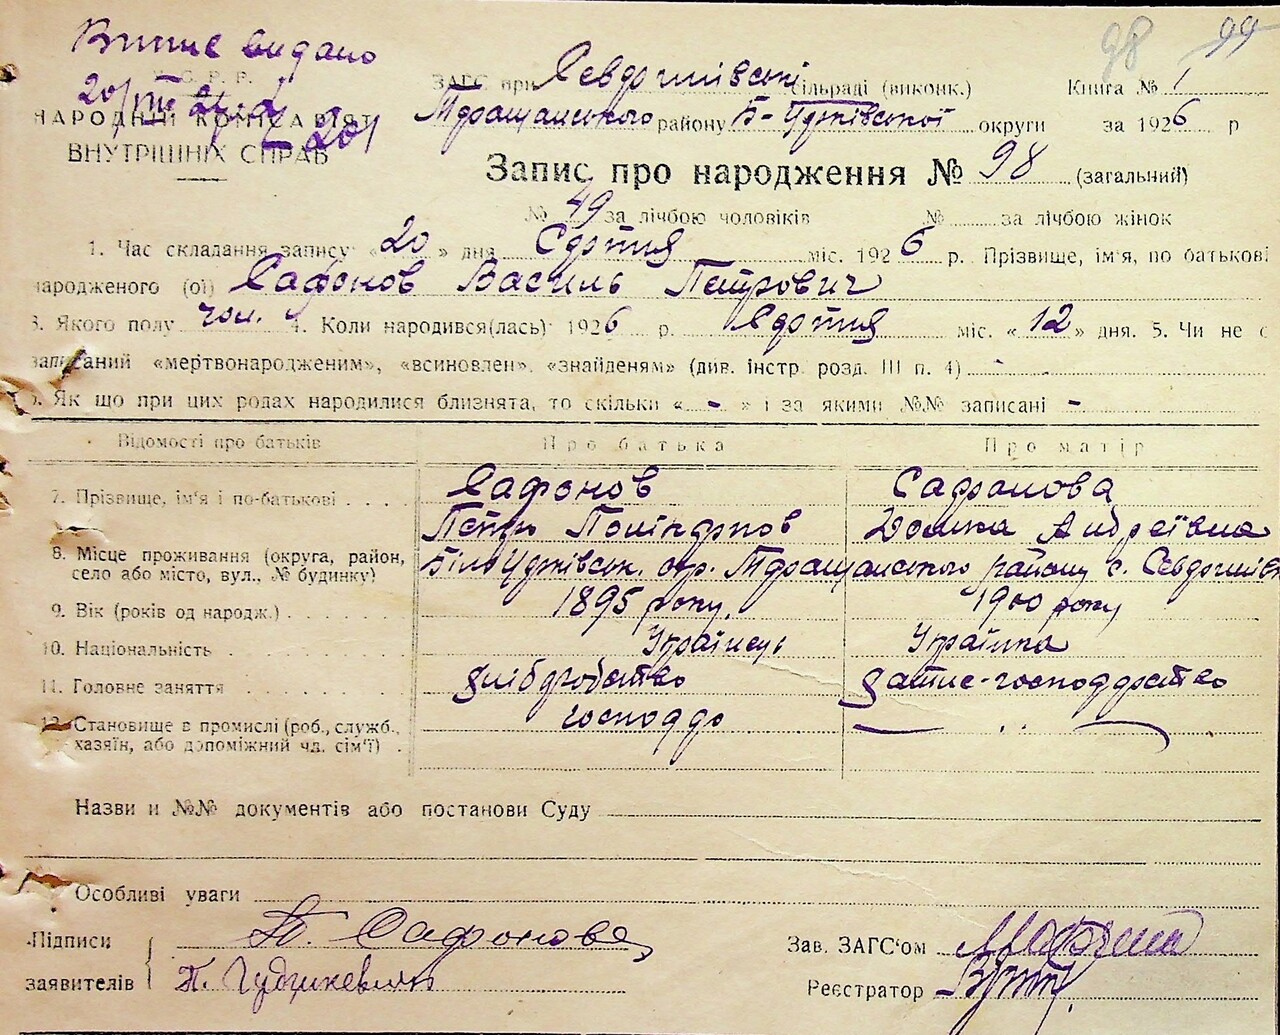 98 99
Витяг видано
У.С.Р.Р.
20/VIII
НАРОДНІЙ КОМІСАРІЯТ
ВНУТРІШНІХ СПРАБ
ЗАГС при сільраді (виконк.) Книга № 1
Таращанського району Б-Церківської округи за 1926 р
Запис про народження № 98 (загальний)
№ 49 за лічбою чоловіків № за лічбою жінок
1. Час складання запису «20» дня Серпня міс. 1926 р. Прізвище, ім'я, по батькові
народженого (ої) Сафонов Василь Петрович
3. Якого полу чол. 4. Коли народився(лась) 1926 р. Серпня міс. «12» дня. 5. Чи не є
записаний «мертвонародженим», «всиновлен», «знайденям» (див. інстр. розд. III п. 4) -
6. Як що при цих родах народилися близнята, то скільки « - » і за якими №№ записані -
Відомості про батьків Про батька Про матір
7. Прізвище, ім'я і по-батькові Сафонов Сафонова
Петро Полікарпов Домка Андреївна
8. Місце проживання (округа, район, село або місто, вул., № будинку) Білоцерківськ. окр. Таращанського району с.
9. Вік (років од народж.) 1895 року, 1900 року
10. Національність Українець Українка
11. Головне заняття хліборобство домашнє господарство
12. Становище в промислі (роб., служб., хазяїн, або допоміжний чл. сім'ї) господар
Назви и №№ документів або постанови Суду
Особливі уваги
Підписи П. Сафонова Зав. ЗАГС'ом
заявителів П. Реєстратор